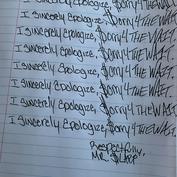 I Sincerely Apologize, Sorry 4 THE WAIT.
I Sincerely Apologize, Sorry 4 THE WAIT.
I Sincerely Apologize, Sorry 4 THE WAIT.
I Sincerely Apologize, Sorry 4 THE WAIT.
I Sincerely Apologize, Sorry 4 THE WAIT.
I Sincerely Apologize, Sorry 4 THE WAIT.
I Sincerely Apologize, Sorry 4 THE WAIT.
Respectfully,
MR.